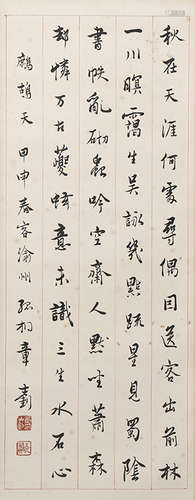 秋在天涯何處尋偶因送客出前林
一川暝靄生吴詠幾點疏星見蜀陰
書帙亂砌蟲吟空齋人默坐蕭森
却憐万古夔蚿意未識三生水石心
鷓鴣天 甲申春客渝州孤桐章士釗